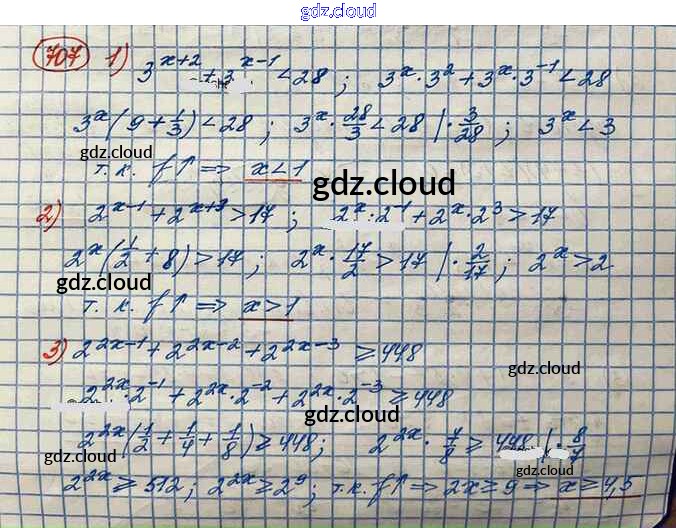 gdz.cloud
707 1) 3^{x+2} + 3^{x-1} < 28 ; 3^x · 3^2 + 3^x · 3^{-1} < 28
3^x (9 + 1/3) < 28 ; 3^x · 28/3 < 28 | · 3/28 ; 3^x < 3
gdz.cloud
т. к. f↑ ⇒ x < 1
gdz.cloud
2) 2^{x-1} + 2^{x+3} > 17 ; 2^x · 2^{-1} + 2^x · 2^3 > 17
2^x (1/2 + 8) > 17 ; 2^x · 17/2 > 17 | · 2/17 ; 2^x > 2
gdz.cloud
gdz.cloud
т. к. f↑ ⇒ x > 1
3) 2^{2x-1} + 2^{2x-2} + 2^{2x-3} ≥ 448
gdz.cloud
2^{2x} · 2^{-1} + 2^{2x} · 2^{-2} + 2^{2x} · 2^{-3} ≥ 448
gdz.cloud
2^{2x} (1/2 + 1/4 + 1/8) ≥ 448 ; 2^{2x} · 7/8 ≥ 448 | · 8/7
gdz.cloud
gdz.cloud
2^{2x} ≥ 512 ; 2^{2x} ≥ 2^9 ; т. к. f↑ ⇒ 2x ≥ 9 ⇒ x ≥ 4,5